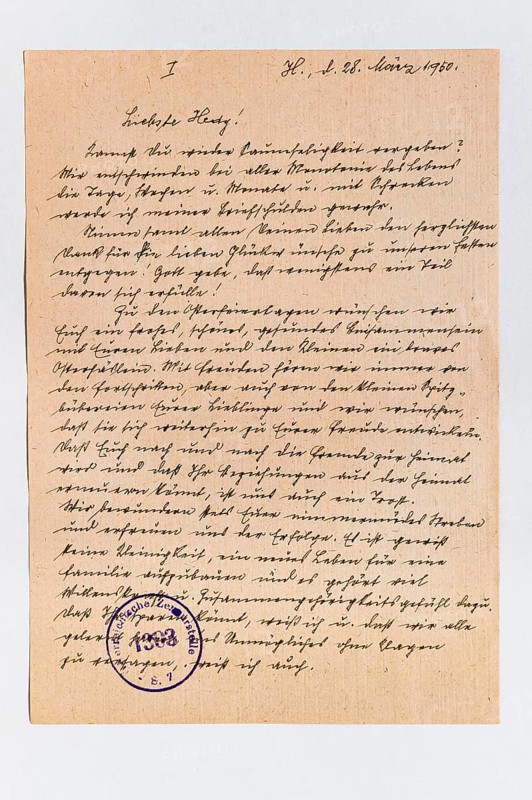 I
H., d. 28. März 1950.
Liebste Hedy!
Kannst Du wieder Saumseligkeit vergeben?
Wir entschwinden bei aller Monotonie des Lebens
die Tage, Wochen u. Monate u. mit Schrecken
werde ich meiner Briefschulden gewahr.
Nimm samt allen Deinen Lieben den herzlichsten
Dank für die lieben Glückwünsche zu unseren Festen
entgegen! Gott gebe, daß wenigstens ein Teil
davon sich erfülle!
Zu den Osterfeiertagen wünschen wir
Euch ein frohes, schönes, gesundes Beisammensein
mit Euren Lieben und den Kleinen ein braves
Osterhäslein. Mit Freuden hören wir immer von
den Fortschritten, aber auch von den kleinen Spitz-
bübereien Eurer Lieblinge und wir wünschen,
daß sie sich weiterhin zu Eurer Freude entwickeln.
Daß Euch nach und nach die Fremde zur Heimat
wird und daß Ihr Beziehungen aus der Heimat
erneuern könnt, ist uns auch ein Trost.
Wir bewundern stets Euer nimmermüdes Streben
und erfreuen uns der Erfolge. Es ist gewiß
keine Kleinigkeit, ein neues Leben für eine
Familie aufzubauen und es gehört viel
Willenskraft u. Zusammengehörigkeitsgefühl dazu.
Daß Ihr sparen könnt, weiß ich u. daß wir alle
gelernt Unmögliches ohne Klagen
zu ertragen, weiß ich auch.
Österreichische Zensurstelle
1393
S. 7